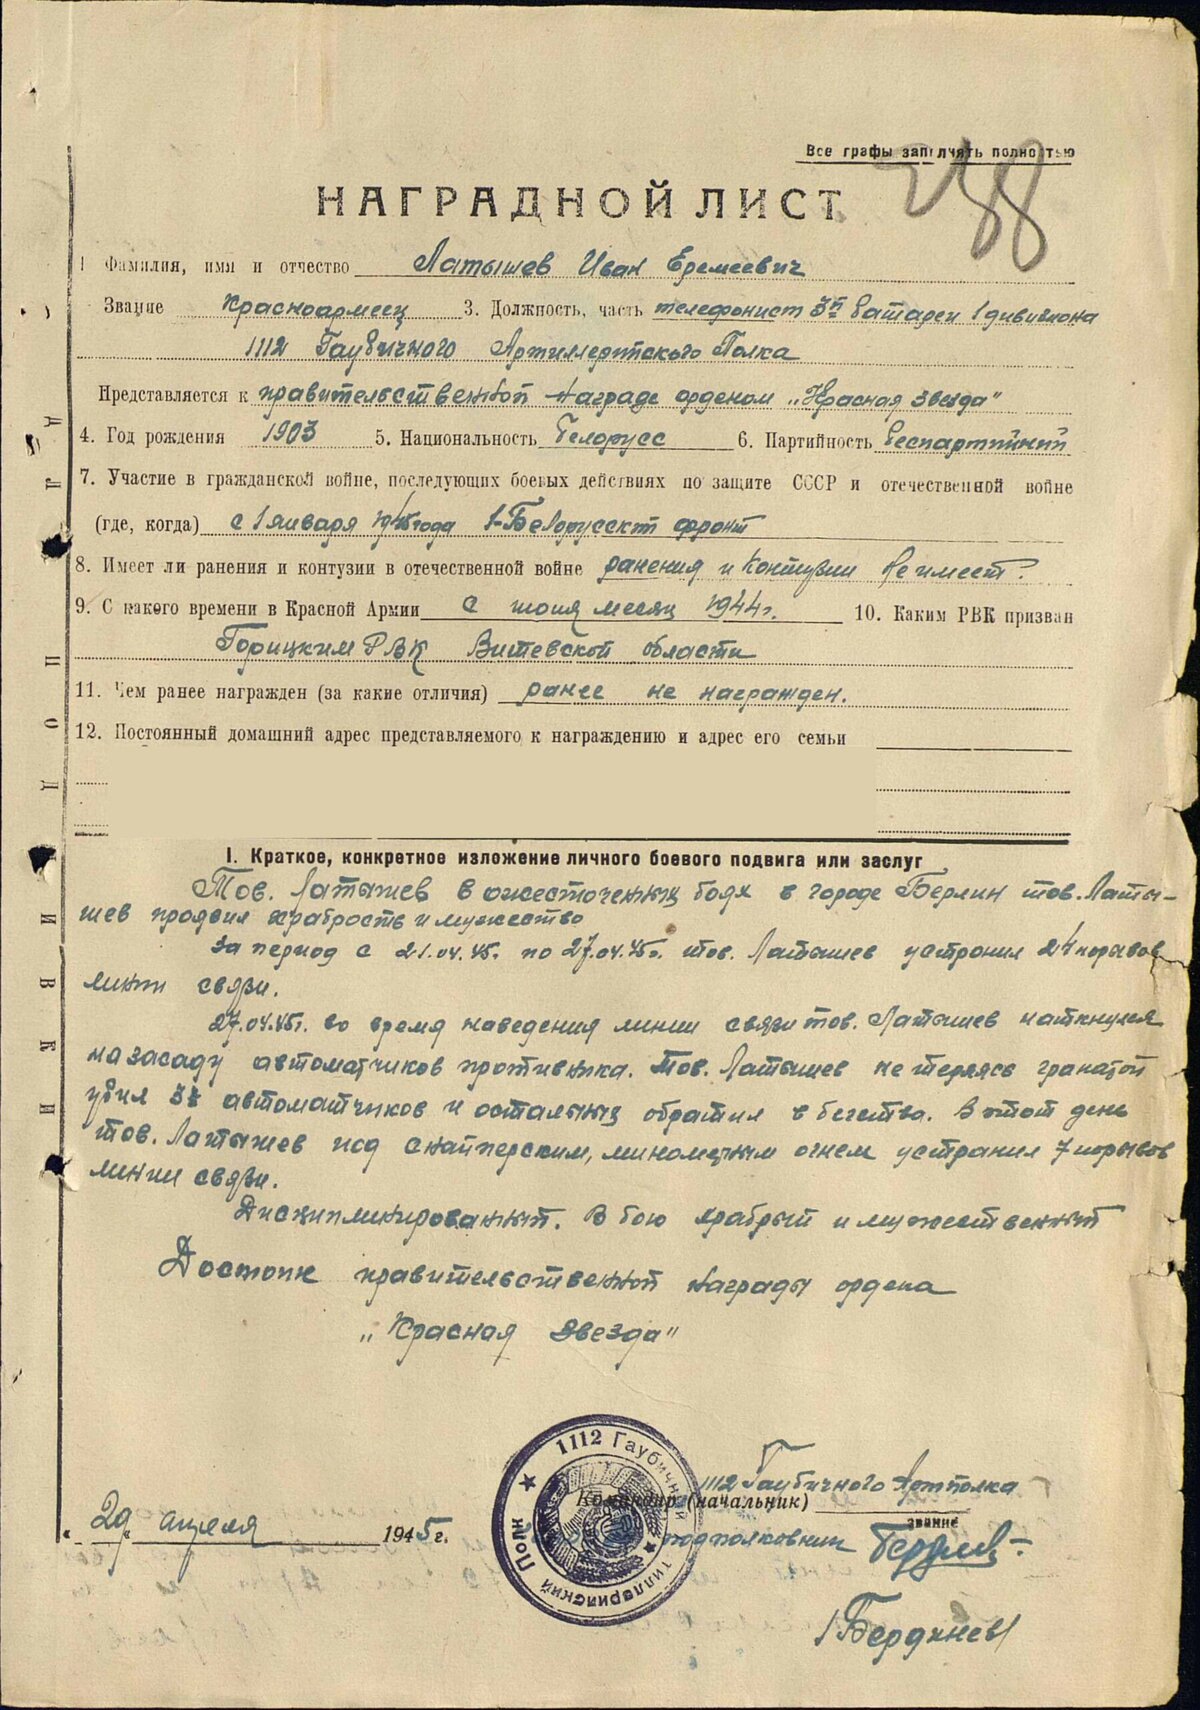 Все графы заполчять полностью
238
НАГРАДНОЙ ЛИСТ
1 Фамилия, имя и отчество Латышев Иван Еремеевич
Звание Красноармеец 3. Должность, часть телефонист 3й батареи 1 дивизиона
1112 Гаубичного Артиллерийского Полка
Представляется к правительственной награде орденом „Красная звезда"
4. Год рождения 1903 5. Национальность Белорусс 6. Партийность беспартийный
7. Участие в гражданской войне, последующих боевых действиях по защите СССР и отечественной войне
(где, когда) с 1 января 1945 года 1-Белорусский фронт
8. Имеет ли ранения и контузии в отечественной войне ранения и контузии не имеет.
9. С какого времени в Красной Армии с июня месяц 1944 г. 10. Каким РВК призван
РВК Витевской области
11. Чем ранее награжден (за какие отличия) ранее не награжден.
12. Постоянный домашний адрес представляемого к награждению и адрес его семьи
I. Краткое, конкретное изложение личного боевого подвига или заслуг
Тов. Латышев в ожесточенных боях в городе Берлин тов. Латы-
шев проявил храбрость и мужество
За период с 21.04.45г. по 27.04.45г. тов. Латышев устранил 24 порывов
линии связи.
27.04.45г. во время наведения линии связи тов. Латышев наткнулся
на засаду автоматчиков противника. Тов. Латышев не теряясь гранатой
убил 3х автоматчиков и остальных обратил в бегство. В этот день
тов. Латышев под снайперским, минометным огнем устранил 7 порывов
линии связи.
Дисциплинированный. В бою храбрый и мужественный
Достоин правительственной награды ордена
„Красная звезда"
1112 Гаубичный Артиллерийский Полк
1112 Гаубичного Артполка
Командир (начальник)
звание
29 апреля 1945 г.
подполковник
/Бердичев/
ДЛЯ ПОДШИВКИ